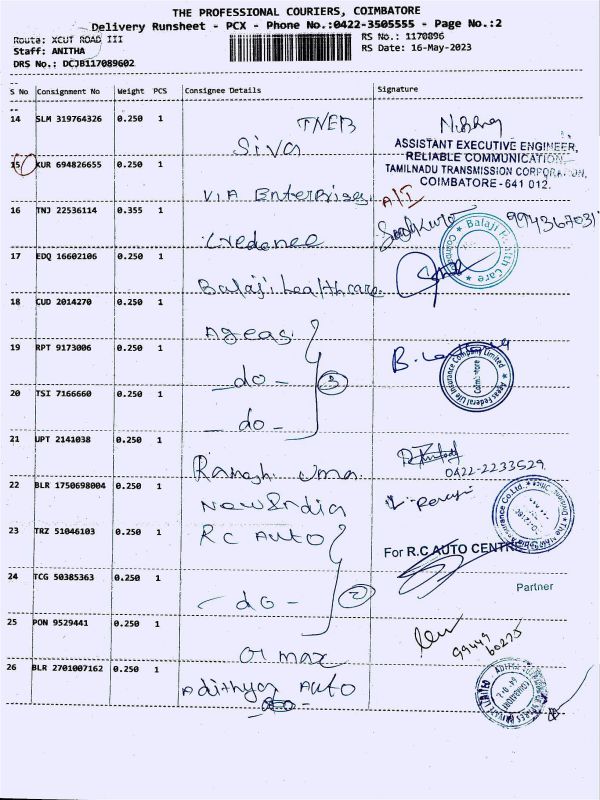 THE PROFESSIONAL COURIERS, COIMBATORE
Delivery Runsheet - PCX - Phone No.:0422-3505555 - Page No.:2
Route: XCUT ROAD III
RS No.: 1170896
Staff: ANITHA
RS Date: 16-May-2023
DRS No.: DCJB117089602
S No Consignment No Weight PCS Consignee Details Signature
14 SLM 319764326 0.250 1 TNEB
Siva
ASSISTANT EXECUTIVE ENGINEER,
RELIABLE COMMUNICATION,
TAMILNADU TRANSMISSION CORPORATION,
COIMBATORE - 641 012.
15 KUR 694826655 0.250 1
VIA Enterprises
16 TNJ 22536114 0.355 1
Credence
17 EDQ 16602106 0.250 1
Balaji healthcare
Balaji Health Care
Coimbatore
18 CUD 2014270 0.250 1
Ageas
19 RPT 9173006 0.250 1
- do -
Ageas Federal Life Insurance Company Limited
Coimbatore
20 TSI 7166660 0.250 1
- do -
21 UPT 2141038 0.250 1
Ramesh Uma
0422-2233529
22 BLR 1750698004 0.250 1
New India
23 TRZ 51046103 0.250 1
RC Auto
For R.C AUTO CENTRE
24 TCG 50385363 0.250 1
- do -
2
Partner
25 PON 9529441 0.250 1
99449
60275
26 BLR 2701007162 0.250 1
Adithya Auto